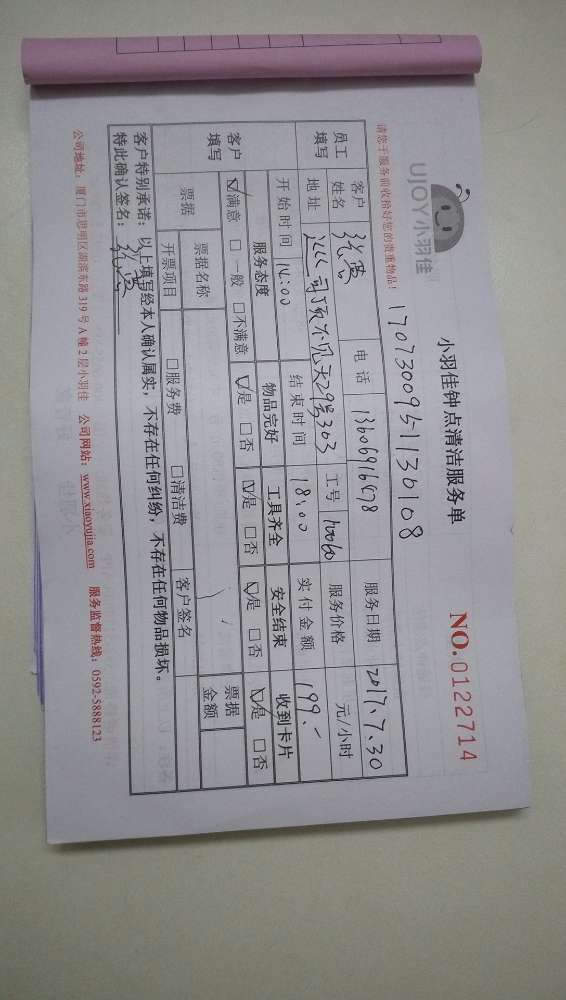 UJOY小羽佳
小羽佳钟点清洁服务单
NO.0122714
1707300951130108
请您于服务前收拾好您的贵重物品!
员工填写
客户姓名 电话 13606916678 服务日期 2017.7.30
地址 29号303 工号 服务价格 元/小时
开始时间 14:00 结束时间 18:00 实付金额 199.-
客户填写
服务态度 物品完好 工具齐全 安全结束 收到卡片
☑满意 □一般 □不满意 ☑是 □否 ☑是 □否 ☑是 □否 ☑是 □否
票据 票据名称 票据金额
开票项目 □服务费 □清洁费 客户签名
客户特别承诺:以上填写经本人确认属实,不存在任何纠纷,不存在任何物品损坏。
特此确认签名:
公司地址:厦门市思明区湖滨东路319号A幢2层小羽佳 公司网站:www.xiaoyujia.com 服务监督热线:0592-5888123